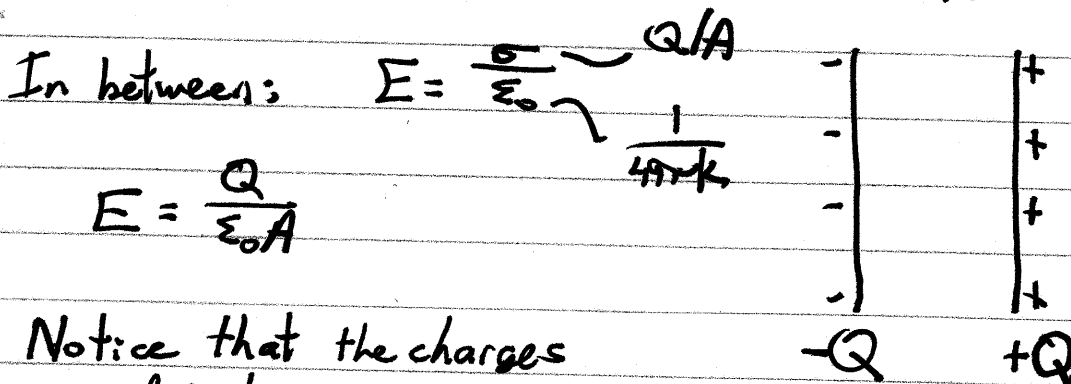 In between; E = σ/ε₀ Q/A
1/4πk
E = Q/ε₀A
- +
- +
- +
- +
Notice that the charges -Q +Q